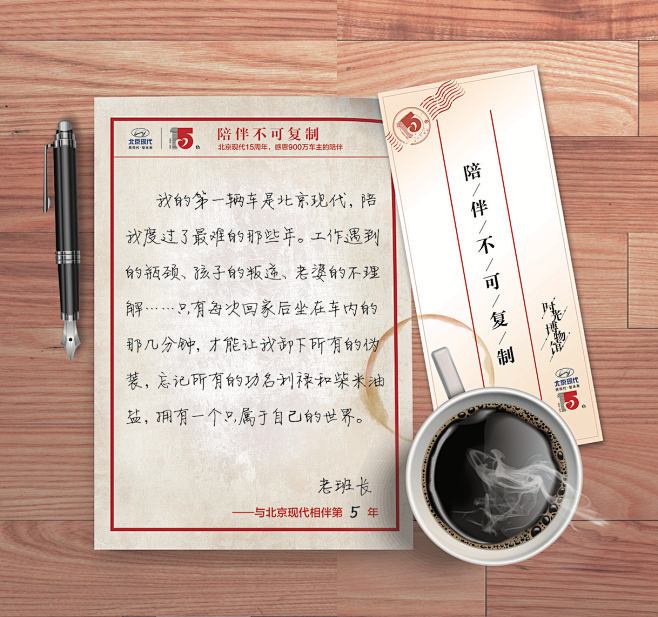 北京现代
15th
陪伴不可复制
北京现代15周年，感恩900万车主的陪伴
我的第一辆车是北京现代，陪
我度过了最难的那些年。工作遇到
的瓶颈、孩子的叛逆、老婆的不理
解……只有每次回家后坐在车内的
那几分钟，才能让我卸下所有的伪
装，忘记所有的功名利禄和柴米油
盐，拥有一个只属于自己的世界。
老班长
——与北京现代相伴第 5 年
15
陪/伴/不/可/复/制
时光博物馆
北京现代
15th